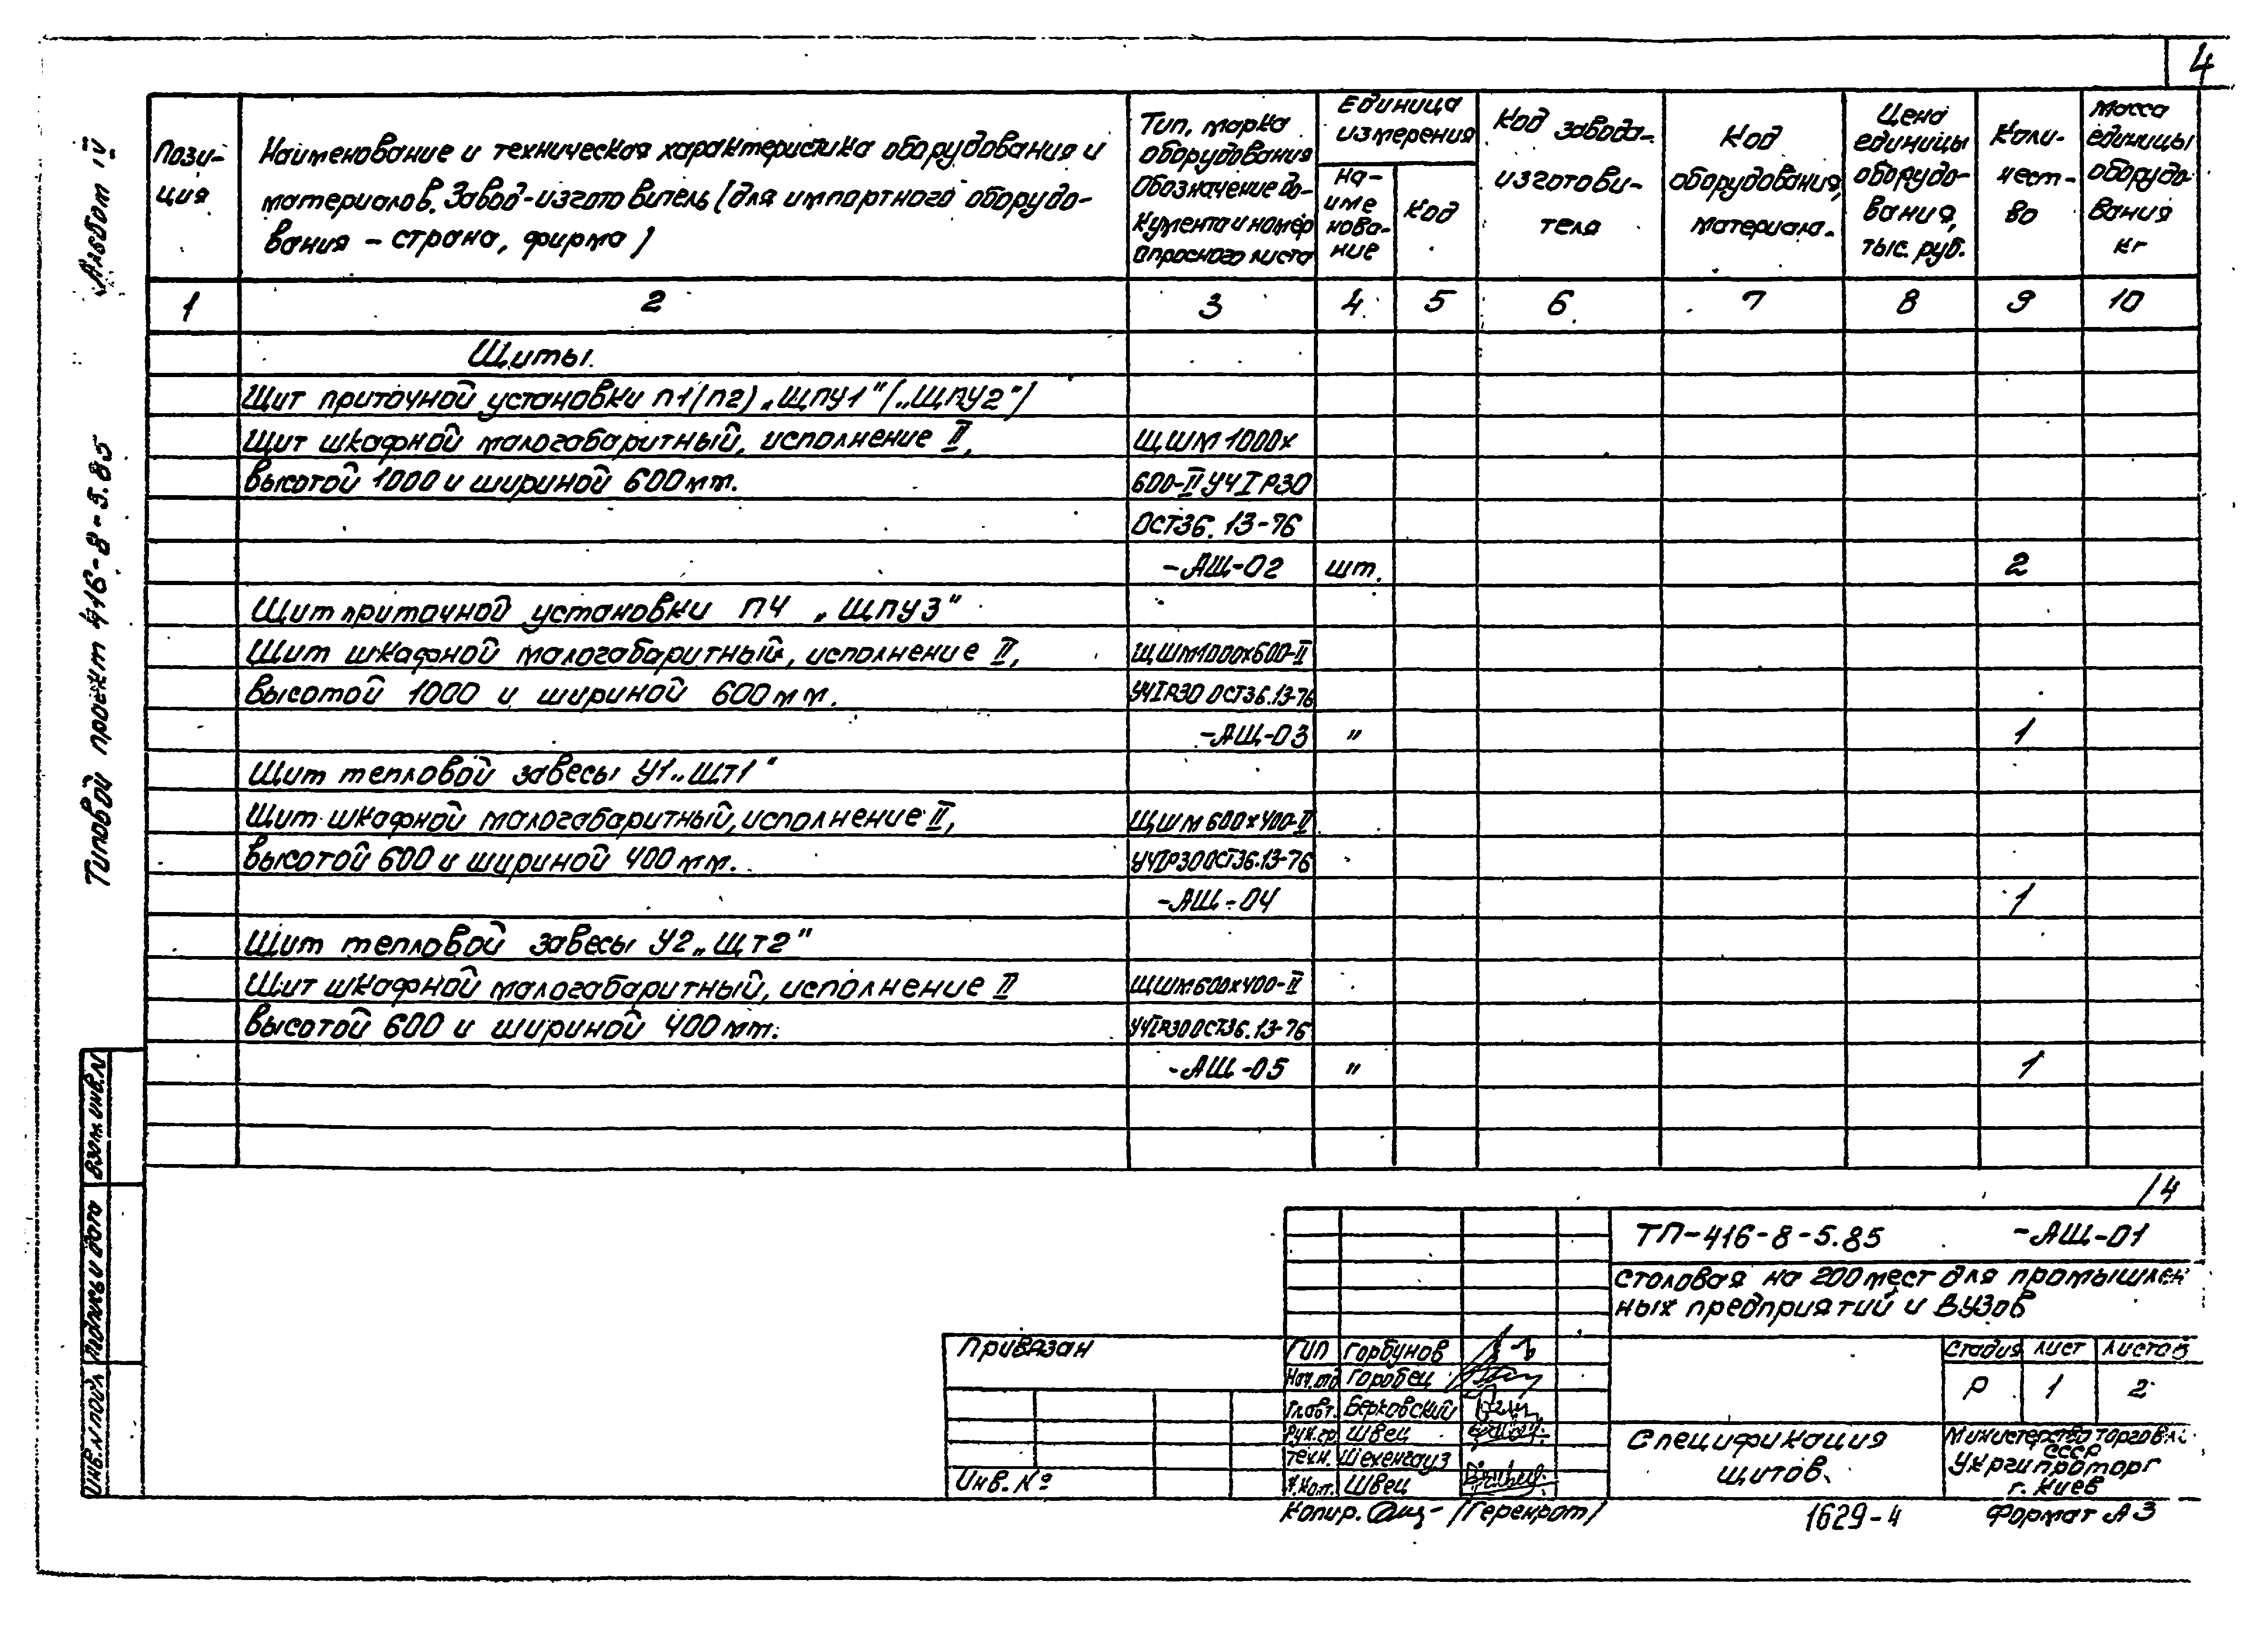 4
Альбом IV
Типовой проект 416-8-5.85
Пози-
ция
Наименование и техническая характеристика оборудования и
материалов. Завод-изготовитель (для импортного оборудо-
вания - страна, фирма)
Тип, марка
оборудования
Обозначение до-
кумента и номер
опросного листа
Единица
измерения
На-
име
нова-
ние
Код
Код завода-
изготови-
теля
Код
оборудования,
материала.
Цена
единицы
оборудо-
вания,
тыс. руб.
Коли-
чест-
во
Масса
единицы
оборудо
вания
кг
1 2 3 4 5 6 7 8 9 10
Щиты.
Щит приточной установки П1(П2) „ЩПУ1" („ЩПУ2")
Щит шкафной малогабаритный, исполнение II, ЩШМ 1000х
высотой 1000 и шириной 600мм. 600-II УЧIP30
ОСТ36.13-76
-АЩ-02 шт. 2
Щит приточной установки П4 „ЩПУ3"
Щит шкафной малогабаритный, исполнение II, ЩШМ1000х600-II
высотой 1000 и шириной 600мм. УЧIP30 ОСТ36.13-76
-АЩ-03 " 1
Щит тепловой завесы У1„ЩТ1"
Щит шкафной малогабаритный, исполнение II, ЩШМ600х400-II
высотой 600 и шириной 400мм. УЧIP30ОСТ36.13-76
-АЩ-04 1
Щит тепловой завесы У2„ЩТ2"
Щит шкафной малогабаритный, исполнение II ЩШМ600х400-II
высотой 600 и шириной 400мм. УЧIP30ОСТ36.13-76
-АЩ-05 " 1
Взам.инв.N
Подпись и дата
Инв.N подл
/4
ТП-416-8-5.85 -АЩ-01
столовая на 200мест для промышлен
ных предприятий и ВУЗов
Привязан
Инв. №
ГИП Горбунов
Нач.отд Горобец
Гл.спец Берковский
Рук.гр Швец
Техн. Шехенгауз
Н.кон. Швец
Стадия лист листов
Р 1 2
Спецификация
щитов.
Министерство торговли
СССР
Укргипроторг
г. Киев
Копир. (Геренрот)
1629-4
Формат А3